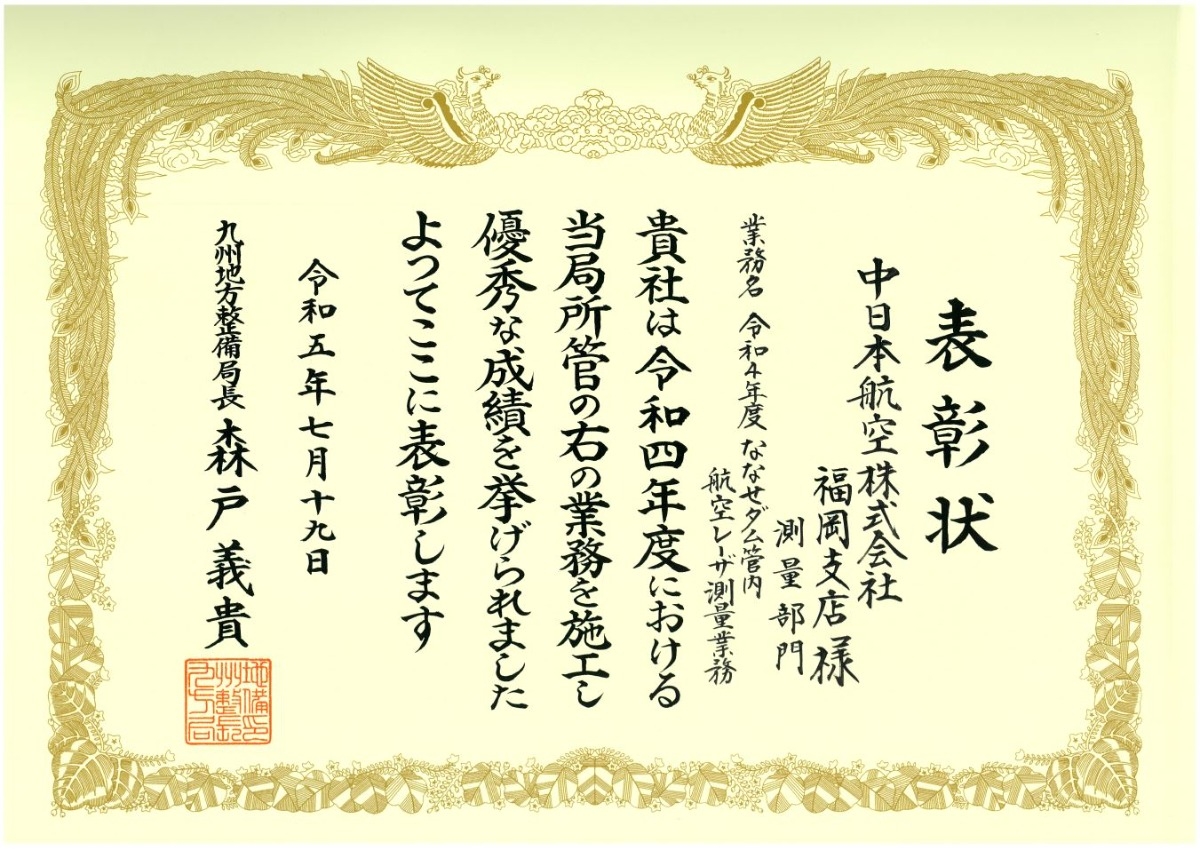 表彰状
中日本航空株式会社
福岡支店様
測量部門
業務名 令和4年度 ななせダム管内
航空レーザ測量業務
貴社は令和四年度における
当局所管の右の業務を施工し
優秀な成績を挙げられました
よってここに表彰します
令和五年七月十九日
九州地方整備局長 森戸義貴